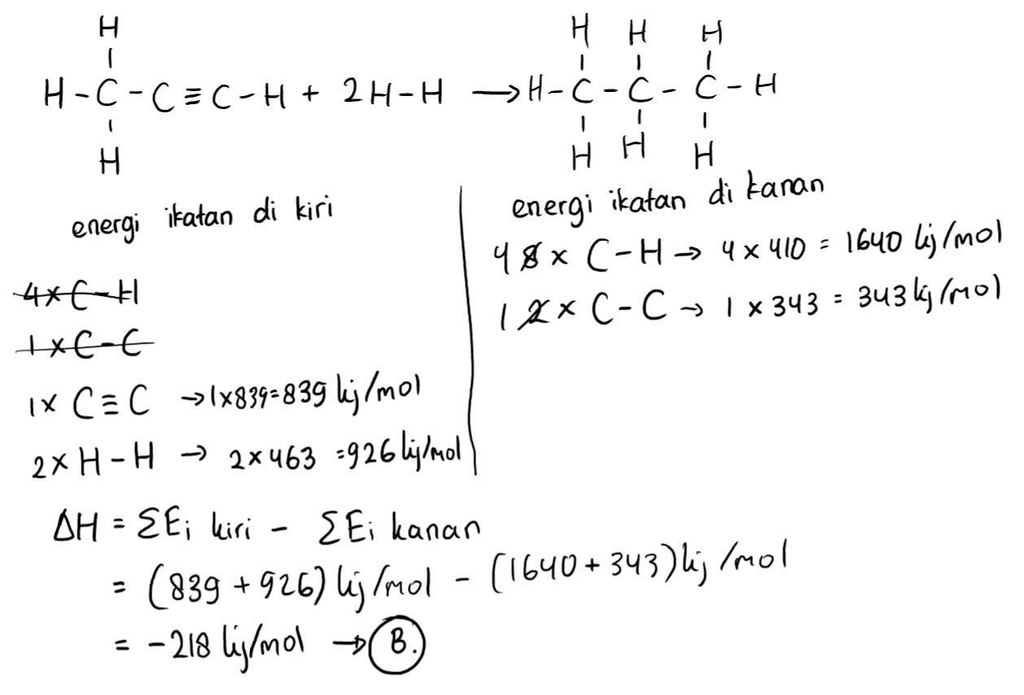 H H H H
H-C-C≡C-H + 2H-H →H-C-C-C-H
H H H H
energi ikatan di kiri
4×C-H
1×C-C
1× C≡C →1×839=839 kj/mol
2×H-H → 2×463 =926 kj/mol
energi ikatan di kanan
4 8× C-H → 4×410 = 1640 kj/mol
1 2× C-C → 1×343 = 343 kj/mol
ΔH = ΣEi kiri - ΣEi kanan
= (839+926) kj/mol - (1640+343) kj/mol
= -218 kj/mol → B.